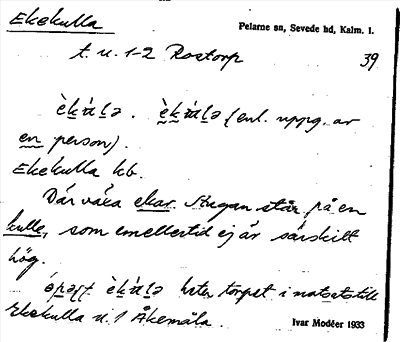 Ekekulla
Pelarne sn, Sevede hd, Kalm. l.
t. u. 1-2 Rostorp
39
(enl. uppg. av
en person).
Ekekulla kb.
Där växa ekar. Stugan står på en
kulle, som emellertid ej är särskilt
hög.
heter torpet i motsats till
Ekekulla u. 1 Åkemåla.
Ivar Modéer 1933